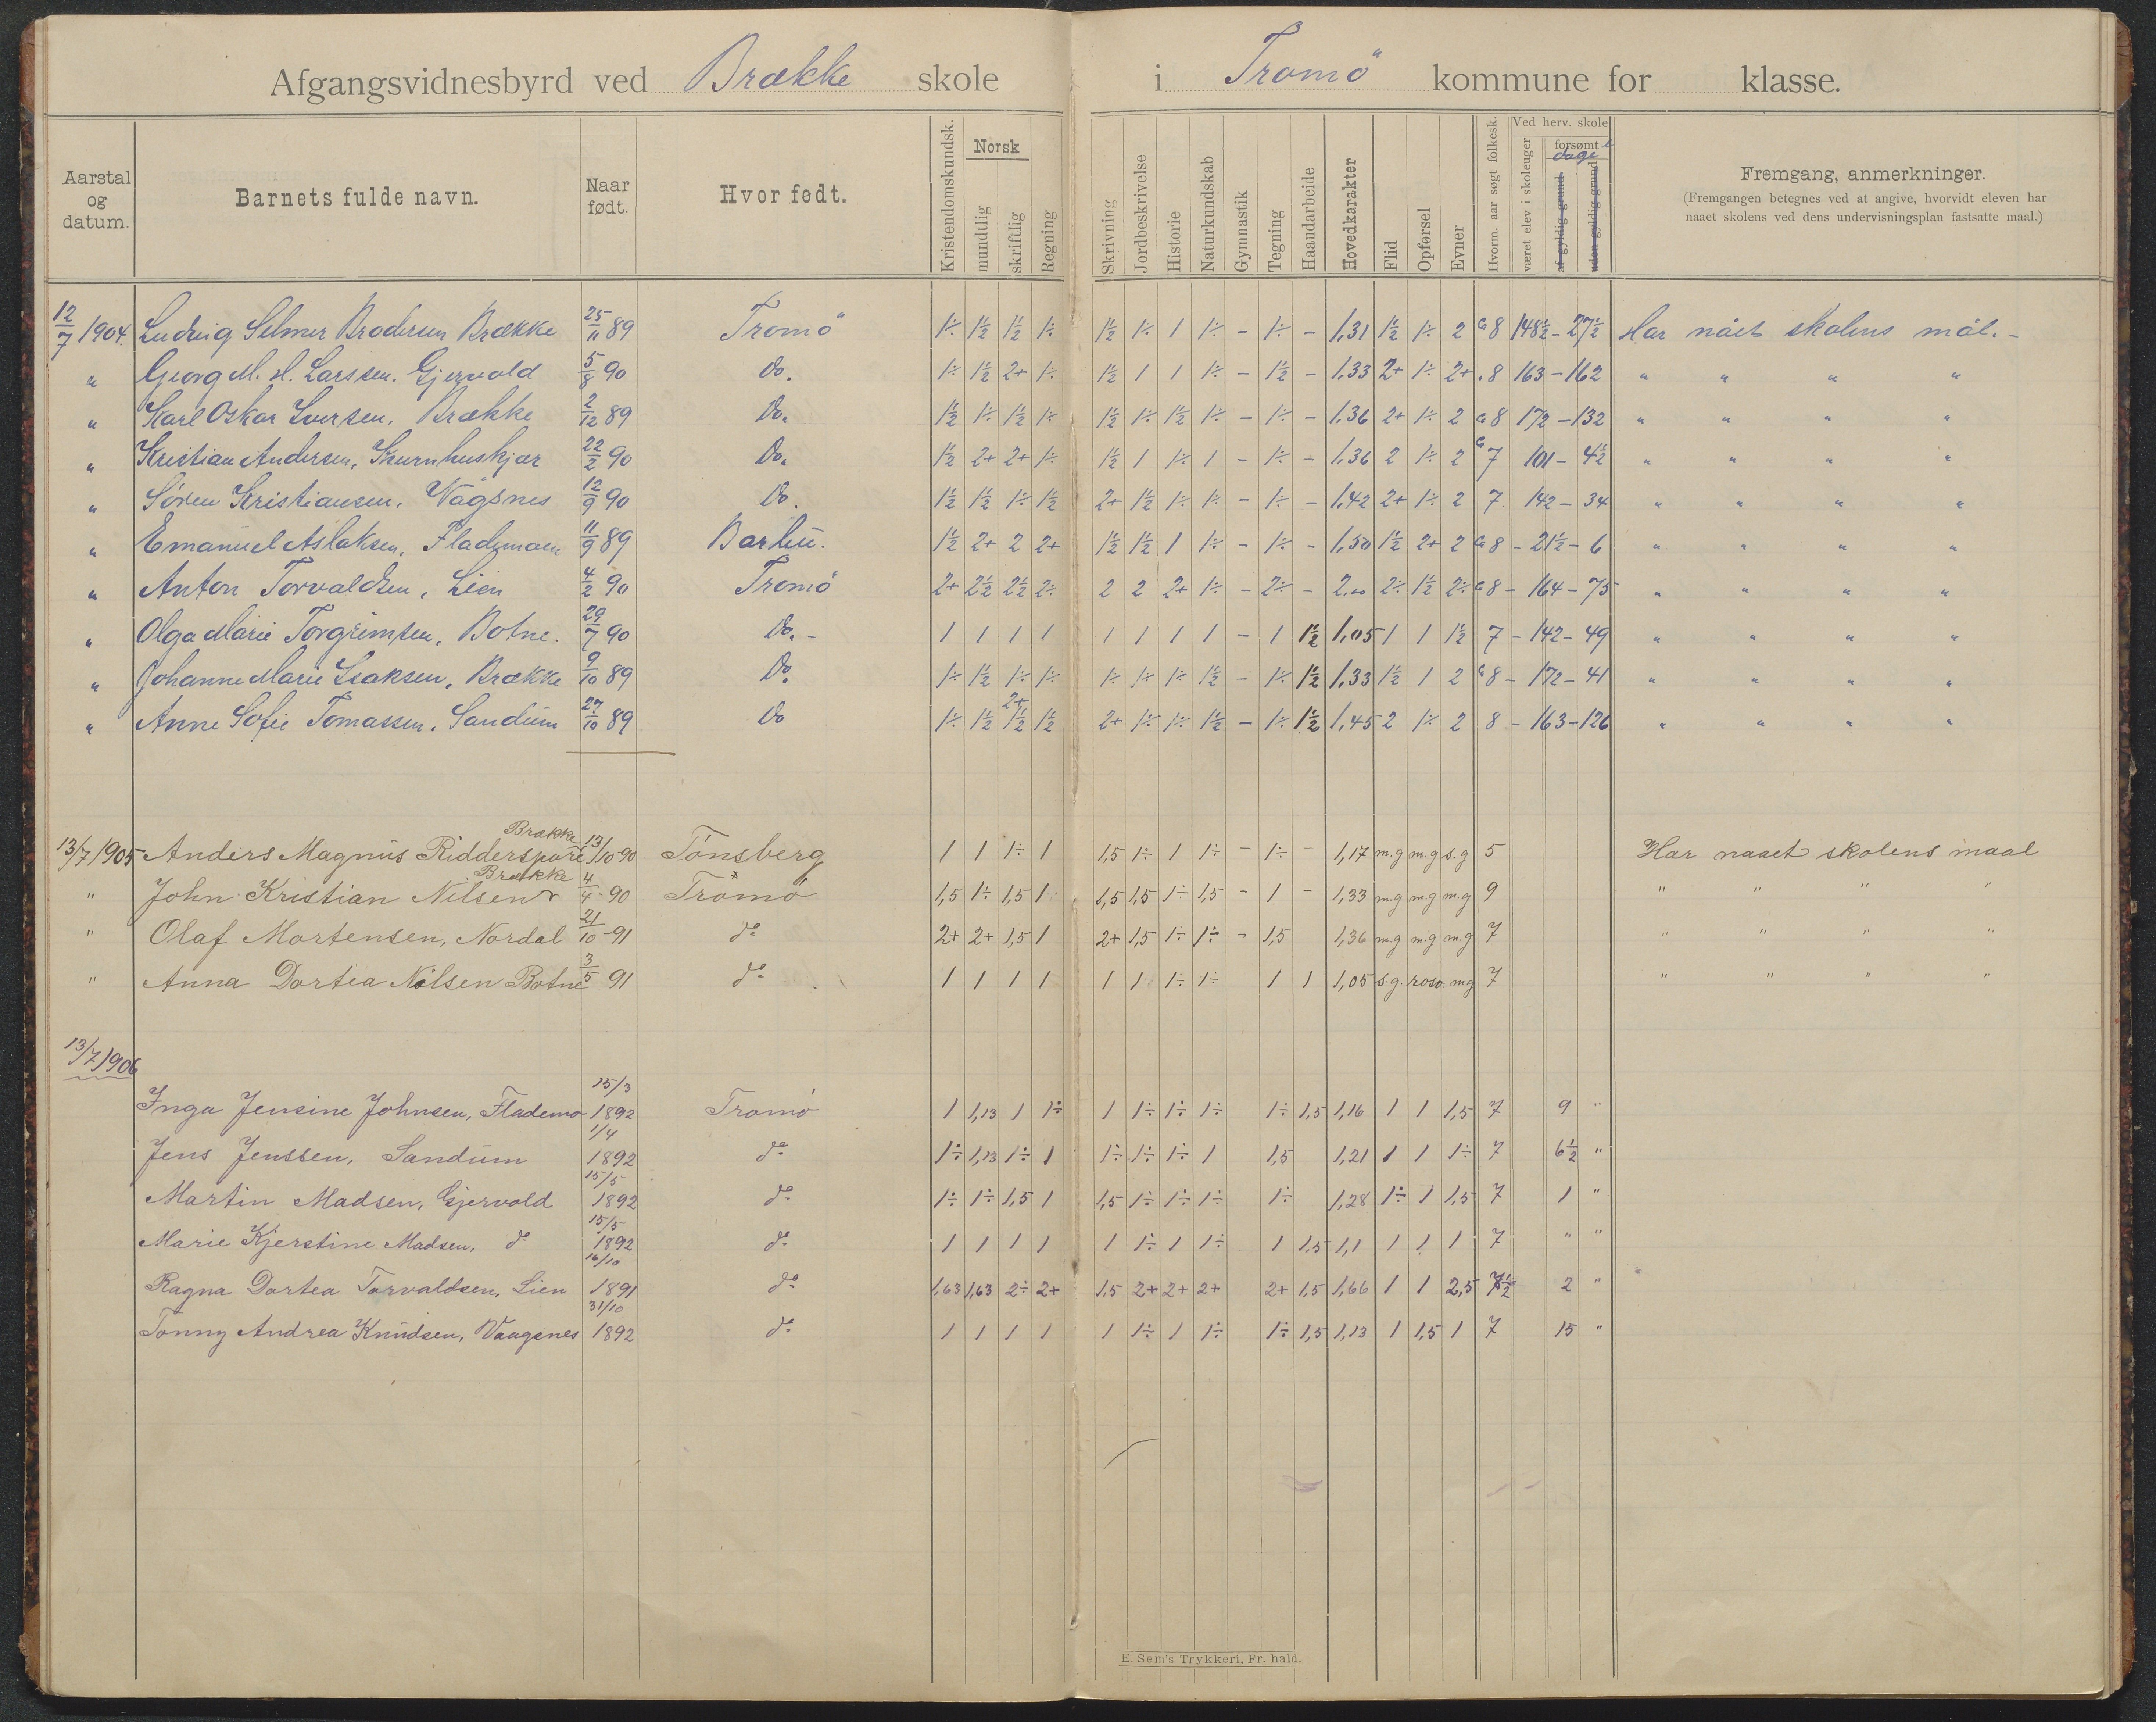 Afgangsvidnesbyrd ved Brække skole i Tromö kommune for klasse.
Aarstal og datum. Barnets fulde navn. Naar født. Hvor født. Kristendomskundsk. Norsk mundtlig skriftlig Regning Skrivning Jordbeskrivelse Historie Naturkundskab Gymnastik Tegning Haandarbeide Hovedkarakter Flid Opførsel Evner Hvorm. aar søgt folkesk. Ved herv. skole været elev i skoleuger forsømt dage af gyldig grund uden gyldig grund Fremgang, anmerkninger.
(Fremgangen betegnes ved at angive, hvorvidt eleven har
naaet skolens ved dens undervisningsplan fastsatte maal.)
12/7 1904. Ludvig Selmer Brodersen Brække 25/11 89 Tromö 1÷ 1½ 1½ 1÷ 1½ 1÷ 1 1÷ - 1÷ - 1,31 1½ 1÷ 2 8 148½ - 27½ Har nået skolens mål. -
" Georg M. H. Larssen. Gjervold 5/8 90 Do. 1÷ 1½ 2+ 1÷ 1½ 1 1 1÷ - 1½ - 1,33 2+ 1÷ 2+ 8 163 - 162 " " " "
" Karl Oskar Iversen, Brække 2/12 89 Do. 1½ 1÷ 1½ 1÷ 1½ 1÷ 1½ 1÷ - 1÷ - 1,36 2+ 1÷ 2 8 172 - 132 " " " "
" Kristian Andersen, 22/2 90 Do. 1½ 2+ 2+ 1÷ 1½ 1 1÷ 1 - 1÷ - 1,36 2 1÷ 2 7 101 - 4½ " " " "
" Søren Kristiansen. Vågsnes 12/9 90 Do. 1½ 1½ 1÷ 1½ 2+ 1½ 1÷ 1÷ - 1÷ - 1,42 2+ 1÷ 2 7. 142 - 34 " " " "
" Emanuel Aslaksen, Flademoen 11/9 89 Barbu. 1½ 2+ 2 2+ 1½ 1½ 1 1÷ - 1÷ - 1,50 1½ 2+ 2 8 - 21½ - 6 " " " "
" Anton Torvaldsen, Lien 4/2 90 Tromö 2+ 2½ 2½ 2÷ 2 2 2+ 1÷ - 2÷ - 2,00 2÷ 1½ 2÷ 8 - 164 - 75 " " " "
" Olga Marie Torgrimsen, Botne. 29/7 90 Do. - 1 1 1 1 1 1 1 1 - 1 1½ 1,05 1 1 1½ 7 - 142 - 49 " " " "
" Johanne Marie Isaksen, Brække 9/10 89 Do. 1÷ 1½ 1÷ 1÷ 1÷ 1÷ 1÷ 1½ - 1÷ 1½ 1,33 1½ 1 2 8 - 172 - 41 " " " "
" Anne Sofie Tomassen. Sandum 27/10 89 Do 1÷ 1½ 2+ 1½ 1½ 2+ 1÷ 1÷ 1½ - 1÷ 1½ 1,45 2 1÷ 2 8 - 163 - 126 " " " "
13/7 1905 Anders Magnus Ridderspore Brække 13/10 90 Tönsberg 1 1 1÷ 1 1,5 1÷ 1 1÷ - 1÷ - 1,17 m.g m.g s.g 5 Har naaet skolens maal
" John Kristian Nilsen Brække 4/4 - 90 Tromø 1,5 1÷ 1,5 1 1,5 1,5 1÷ 1,5 - 1 - 1,33 m.g m.g m.g 9 " " " "
" Olaf Mortensen, Nordal 21/10 - 91 do 2+ 2+ 1,5 1 2+ 1,5 1÷ 1÷ - 1,5 1,36 m.g m.g m.g 7 " " " "
" Anna Dortea Nilsen Botne 3/5 91 do 1 1 1 1 1 1 1÷ 1÷ 1 1 1,05 s.g. roso. mg 7 " " " "
13/7 1906
Inga Jensine Johnsen, Flademo 15/3 1892 Tromø 1 1,13 1 1÷ 1 1÷ 1÷ 1÷ 1÷ 1,5 1,16 1 1 1,5 7 9 "
Jens Jenssen, Sandum 1/4 1892 do 1÷ 1,13 1÷ 1 1÷ 1÷ 1÷ 1 1,5 1,21 1 1 1÷ 7 6½ "
Martin Madsen, Gjervold 15/5 1892 do 1÷ 1÷ 1,5 1 1,5 1÷ 1÷ 1÷ 1÷ 1,28 1÷ 1 1,5 7 1 "
Marie Kjerstine Madsen, do 15/5 1892 do 1 1 1 1 1 1÷ 1 1÷ 1 1,5 1,1 1 1 1 7 " "
Ragna Dortea Torvaldsen, Lien 16/10 1891 do 1,63 1,63 2÷ 2+ 1,5 2+ 2+ 2+ 2+ 1,5 1,66 1 1 2,5 7½ 2 "
Tonny Andrea Knudsen, Vaagsnes 31/10 1892 do 1 1 1 1 1 1÷ 1 1÷ 1÷ 1,5 1,13 1 1,5 1 7 15 "
E. Sem's Trykkeri, Fr. hald.